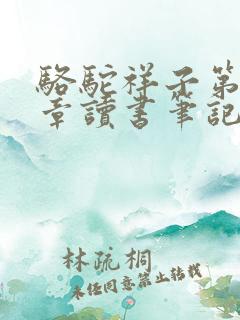 駱駝祥子第
章讀書筆記
林疏桐
未任同意禁止轉載